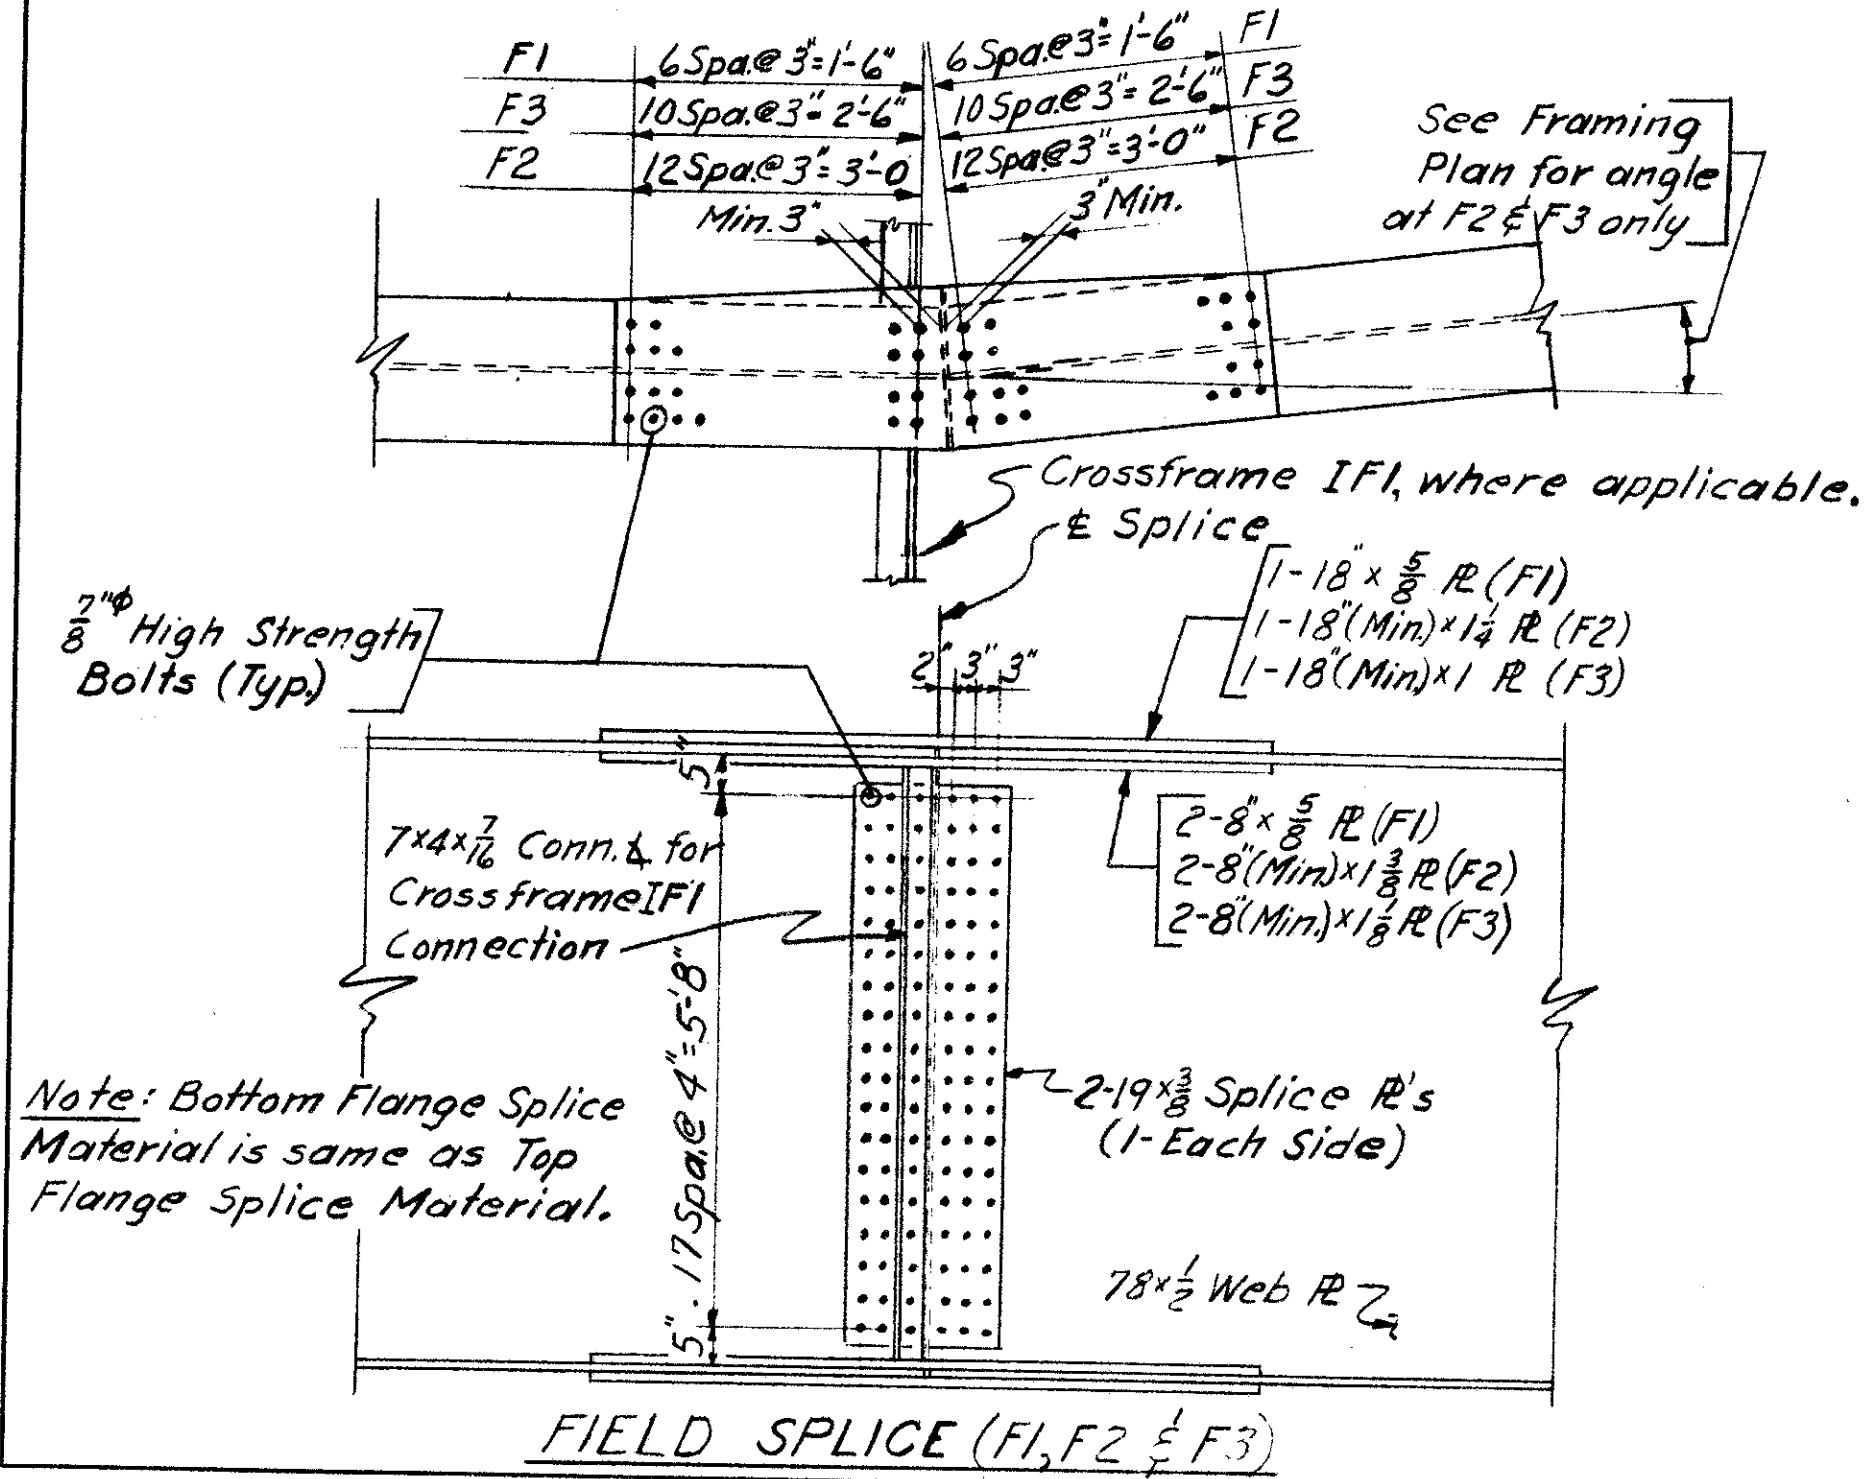 F1 6 Spa.@ 3"= 1'-6" 6 Spa.@ 3"= 1'-6" F1
F3 10 Spa.@ 3"= 2'-6" 10 Spa.@ 3"= 2'-6" F3
F2 12 Spa.@ 3"= 3'-0 12 Spa.@ 3"= 3'-0" F2
Min. 3" 3" Min.
See Framing
Plan for angle
at F2 & F3 only
Crossframe IF1, where applicable.
℄ Splice
7/8"ϕ High Strength
Bolts (Typ.)
1-18" x 5/8 ℞ (F1)
1-18"(Min.) x 1 1/4 ℞ (F2)
1-18"(Min.) x 1 ℞ (F3)
2" 3" 3"
5"
2-8" x 5/8 ℞ (F1)
2-8"(Min.) x 1 3/8 ℞ (F2)
2-8"(Min.) x 1 1/8 ℞ (F3)
7x4x 7/16 Conn. ∠ for
Crossframe IF1
Connection
17 Spa.@ 4"= 5'-8"
2-19 x 3/8 Splice ℞'s
(1-Each Side)
Note: Bottom Flange Splice
Material is same as Top
Flange Splice Material.
78 x 1/2 Web ℞
5"
FIELD SPLICE (F1, F2 & F3)